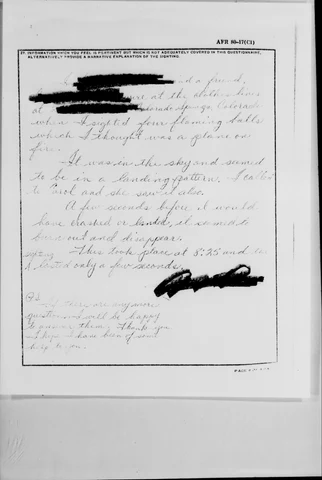 AFR 80-17(C1)
27. INFORMATION WHICH YOU FEEL IS PERTINENT AND WHICH IS NOT ADEQUATELY COVERED IN THIS QUESTIONNAIRE. ALTERNATIVELY PROVIDE A NARRATIVE EXPLANATION OF THE SIGHTING.
I and a friend,
were at the clothes line
at Colorado Springs, Colorado
when I sighted four flaming balls
which I thought was a plane on
fire.
It was in the sky and seemed
to be in a landing pattern. I called
to Carol and she saw it also.
A few seconds before it would
have crashed or landed, it seemed to
burn out and disappear.
This took place at 8:25 and
lasted only a few seconds.
If there are any more
questions I will be happy
to answer them. Thank you
I hope I have been of some
help to you.